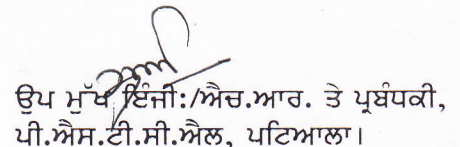 ਉਪ ਮੁੱਖ ਇੰਜੀ:/ਐਚ.ਆਰ. ਤੇ ਪ੍ਰਬੰਧਕੀ,
ਪੀ.ਐਸ.ਟੀ.ਸੀ.ਐਲ, ਪਟਿਆਲਾ।